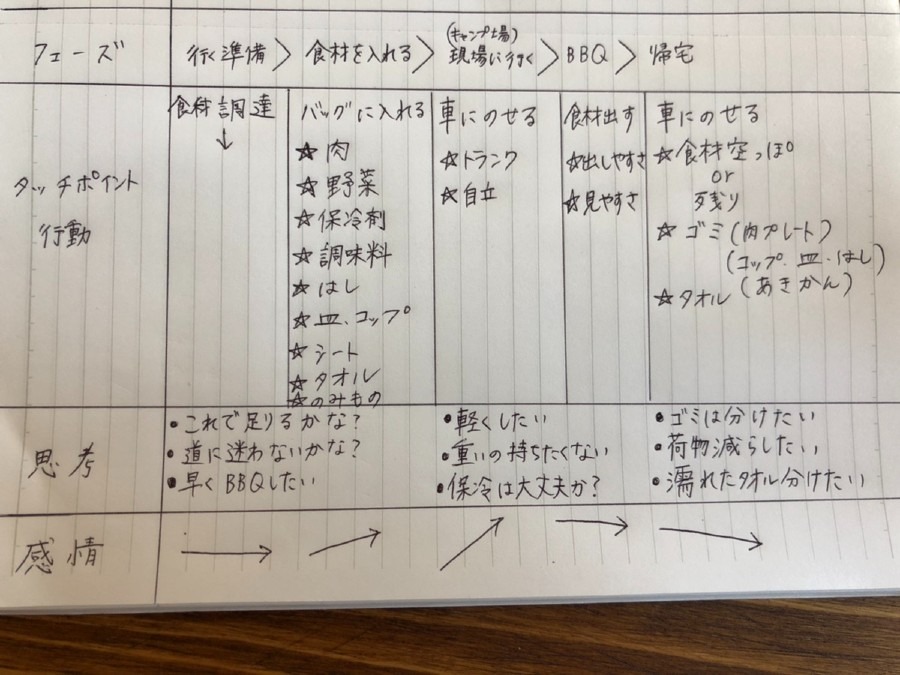 フェーズ
行く準備 > 食材を入れる > (キャンプ場) 現場に行く > BBQ > 帰宅
タッチポイント
行動
食材調達
↓
バッグに入れる
☆ 肉
☆ 野菜
☆ 保冷剤
☆ 調味料
☆ はし
☆ 皿、コップ
☆ シート
☆ タオル
☆ のみもの
車にのせる
☆ トランク
☆ 自立
食材出す
☆ 出しやすさ
☆ 見やすさ
車にのせる
☆ 食材空っぽ
or
残り
☆ ゴミ (肉プレート)
(コップ、皿、はし)
(あきかん)
☆ タオル
思考
・これで足りるかな?
・道に迷わないかな?
・早くBBQしたい
・軽くしたい
・重いの持ちたくない
・保冷は大丈夫か?
・ゴミは分けたい
・荷物減らしたい
・濡れたタオル分けたい
感情
→ ↗ ↗ → →